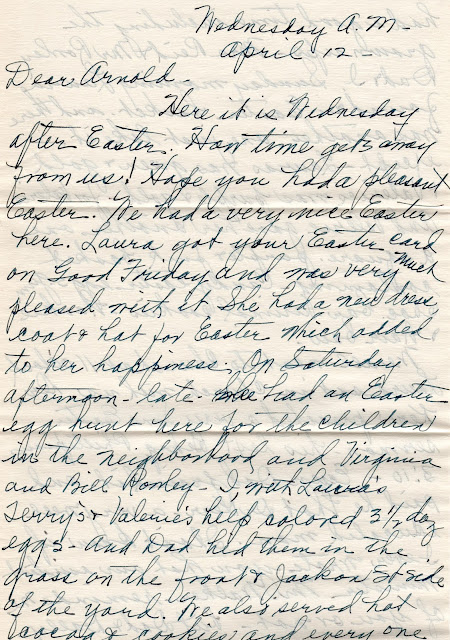 Wednesday A.M-
April 12-
Dear Arnold-
Here it is Wednesday
after Easter. How time gets away
from us! Hope you had a pleasant
Easter. We had a very nice Easter
here. Laura got your Easter card
on Good Friday and was very much
pleased with it She had a new dress,
coat & hat for Easter which added
to her happiness. On Saturday
afternoon - late - we had an Easter
egg hunt here for the children
in the neighborhood and Virginia
and Bill Rowley - I, with Laura's
Terry's & Valerie's help colored 3 1/2 doz
eggs - And Dad hid them in the
grass on the front & Jackson St side
of the yard. We also served hot
cocoa & cookies and every one